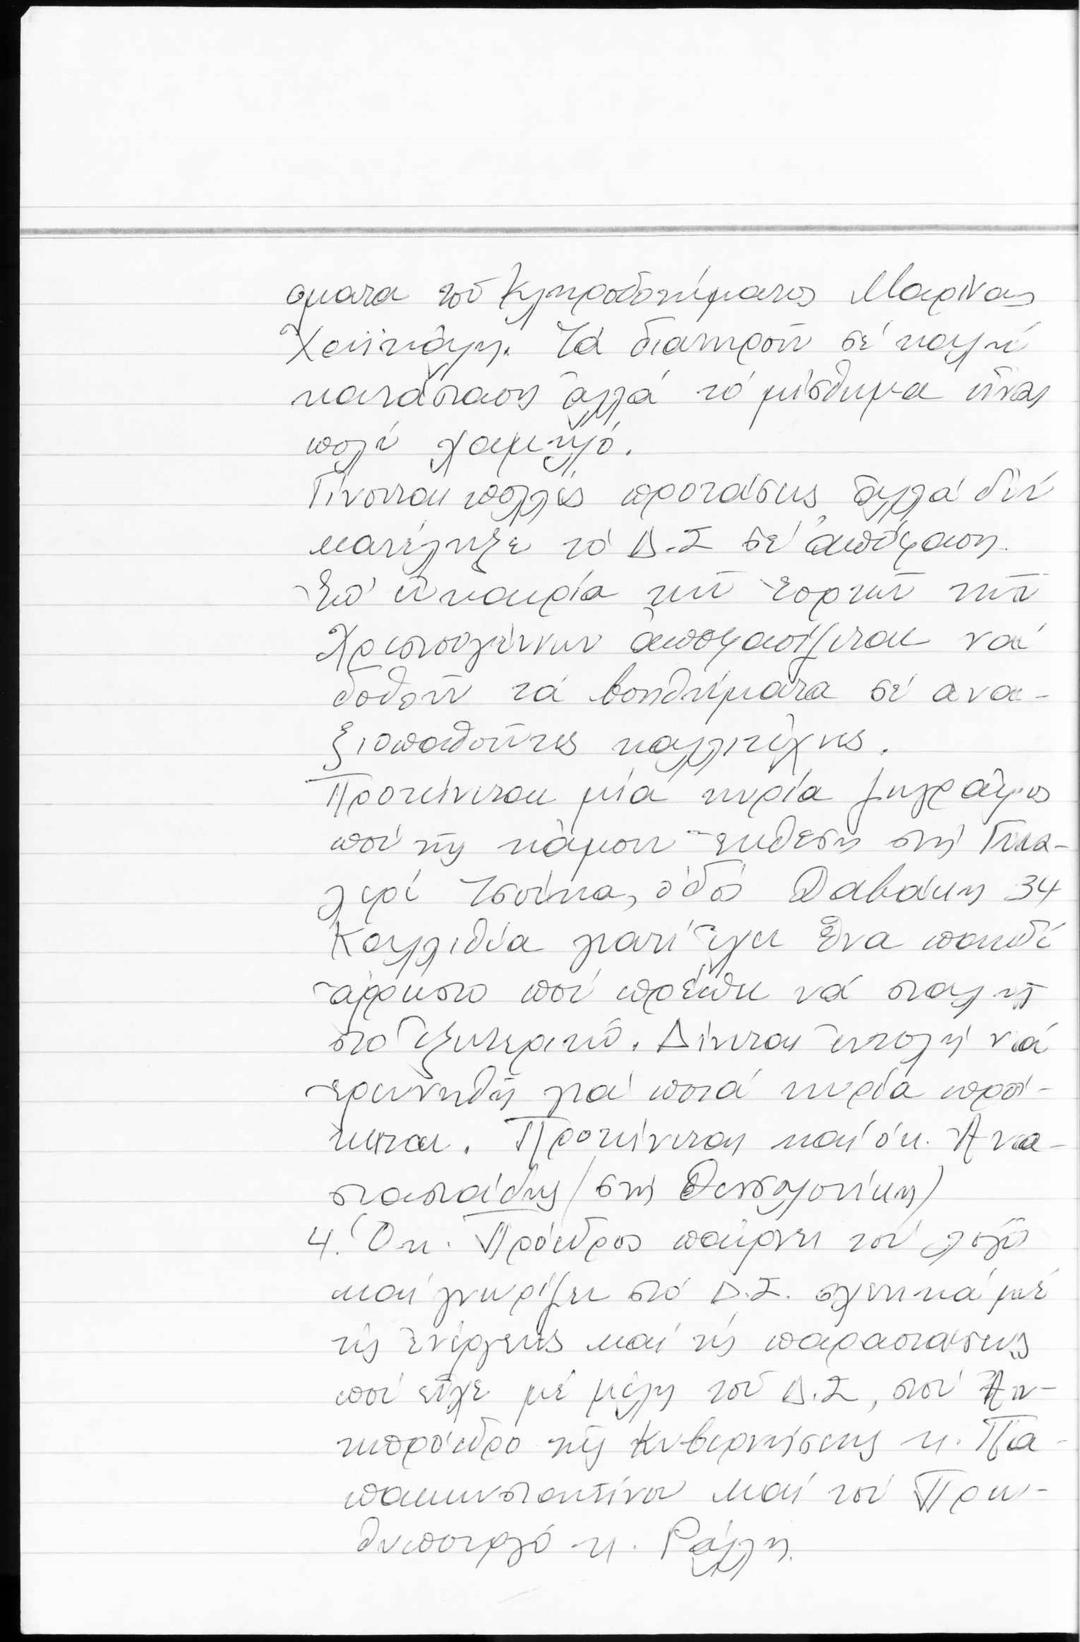 σματα τοῦ Κληροδοτήματος Μαρίνας
Χρηστάκη. Τά διατηροῦν σέ καλή
κατάσταση ἀλλά τό μίσθωμα εἶναι
πολύ χαμηλό.
Γίνονται πολλές προτάσεις ἀλλά δέν
κατέληξε τό Δ.Σ σέ ἀπόφαση.
Ἐπ' εὐκαιρία τῶν ἑορτῶν τῶν
Χριστουγέννων ἀποφασίζεται νά
δοθοῦν τά βοηθήματα σέ ανα-
ξιοπαθοῦντες καλλιτέχνες.
Προτείνεται μία κυρία ζωγράφος
πού τῆς κάμουν ἔκθεση στή Γκα-
λερί Τσούκα, ὁδός Δαβάκη 34
Καλλιθέα γιατί ἔχει ἕνα παιδί
ἄρρωστο πού πρέπει νά σταλῇ
στο ἐξωτερικό. Δίνεται ἐντολή νά
ερευνηθῆ γιά ποιά κυρία πρό-
κειται. Προτείνεται καί ὁ κ. Ἀνα-
στασιάδης (στή Θεσσαλονίκη)
4. Ὁ κ. Πρόεδρος παίρνει τόν λόγο
καί γνωρίζει στό Δ.Σ. σχετικά μέ
τίς ἐνέργειες καί τίς παραστάσεις
πού εἶχε μέ μέλη τοῦ Δ.Σ, στόν Ἀν-
τιπρόεδρο τῆς Κυβερνήσεως κ. Πα-
πακωνσταντίνου καί τόν Πρω-
θυπουργό κ. Ράλλη.